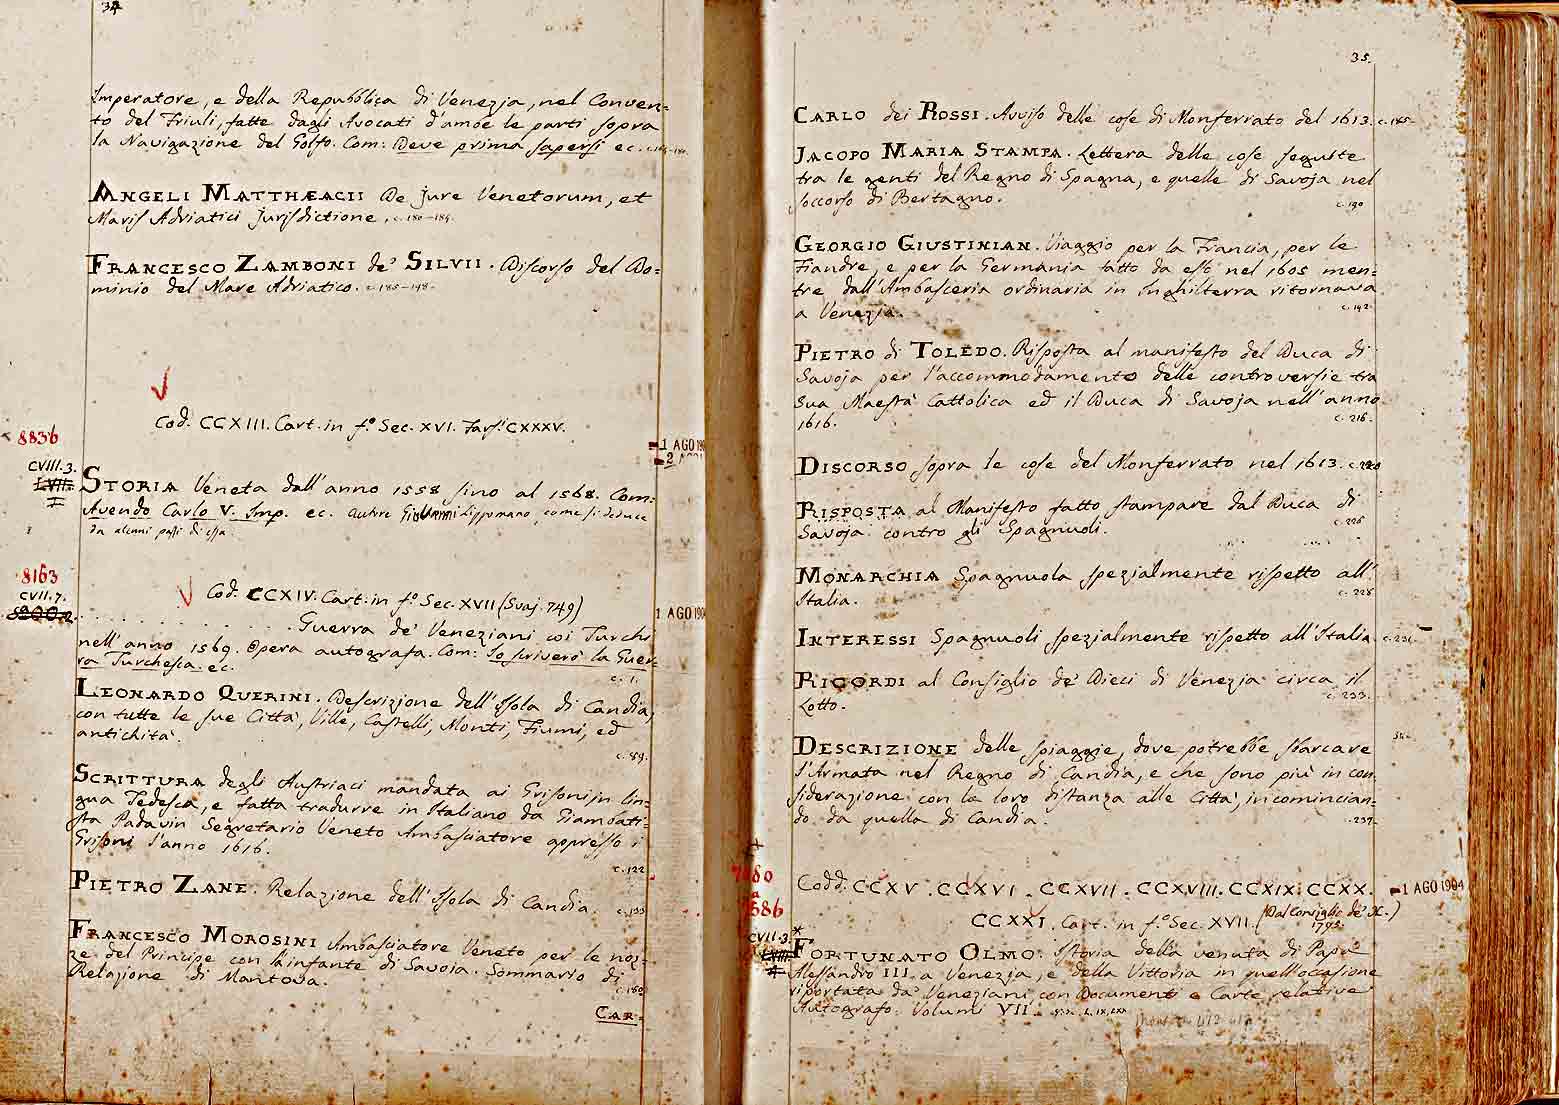 34
Imperatore, e della Repubblica di Venezja, nel Conven=
to del Friuli, fatte dagli Avocati d'amòe le parti sopra
la Navigazione del Golfo. Com: Deve prima sapersi ec.
ANGELI MATTHÆACII De Jure Venetorum, et
Maris Adriatici Jurisdictione. c. 180-184.
FRANCESCO ZAMBONI de' SILVII. Discorso del Do=
minio del Mare Adriatico. c. 185-198.
Cod. CCXIII. Cart. in fº. Sec. XVI. CXXXV.
8836
1 AGO
2
CVIII.3.
STORIA Veneta dall'anno 1558 sino al 1568. Com:
Avendo Carlo V. Imp. ec. Autore Giovanni Lippomano, come si deduce
da alcuni passi di essa
8163
CVII.7.
Cod. CCXIV. Cart. in fº. Sec. XVII (Svaj. 749)
1 AGO 190
Guerra de' Veneziani coi Turchi
nell'anno 1569. Opera autografa. Com: Io scriverò la Guer=
ra Turchesca. ec. c. 1.
LEONARDO QUERINI. Descrizione dell'Isola di Candia,
con tutte le sue Città, Ville, Castelli, Monti, Fiumi, ed
antichità. c. 89.
SCRITTURA degli Austriaci mandata ai Grisoni in lin=
gua Tedesca, e fatta tradurre in Italiano da Giambati=
sta Padavin Segretario Veneto Ambasciatore appresso i
Grisoni l'anno 1616. c. 122
PIETRO ZANE. Relazione dell'Isola di Candia. c. 133
FRANCESCO MOROSINI Ambasciatore Veneto per le noz=
ze del Principe con l'infante di Savoia. Sommario di
Relazione di Mantova. c. 180
CAR=
35.
CARLO dei ROSSI. Avviso delle cose di Monferrato del 1613. c. 185.
JACOPO MARIA STAMPA. Lettera delle cose seguite
tra le genti del Regno di Spagna, e quelle di Savoja nel
soccorso di Bertagno. c. 190
GEORGIO GIUSTINIAN. Viaggio per la Francia, per le
Fiandre, e per la Germania fatto da esso nel 1605 men=
tre dall'Ambasceria ordinaria in Inghilterra ritornava
a Venezja. c. 192.
PIETRO di TOLEDO. Risposta al manifesto del Duca di
Savoja per l'accommodamento delle controversie tra
Sua Maestà Cattolica ed il Duca di Savoja nell'anno
1616. c. 216.
DISCORSO sopra le cose del Monferrato nel 1613. c. 220
RISPOSTA al Manifesto fatto stampare dal Duca di
Savoja contro gli Spagnuoli. c. 226
MONARCHIA Spagnuola spezialmente rispetto all'
Italia. c. 228
INTERESSI Spagnuoli spezialmente rispetto all'Italia. c. 231
RICORDI al Consiglio de' Dieci di Venezja circa il
Lotto. c. 233.
DESCRIZIONE delle spiaggie, dove potrebbe sbarcare
l'Armata nel Regno di Candia, e che sono più in con
siderazione con la loro distanza alle Città, incomincian=
do da quella di Candia. 237.
Codd. CCXV. CCXVI. CCXVII. CCXVIII. CCXIX. CCXX.
1 AGO 1904
CCXXI. Cart. in fº. Sec. XVII. (Dal Consiglio de' X.)
1795.
CVII.3.
FORTUNATO OLMO. Istoria della venuta di Papa
Alessandro III. a Venezia, e della Vittoria in quell'occasione
riportata da' Veneziani, con Documenti e Carte relative
Autografo. Volumi VII.